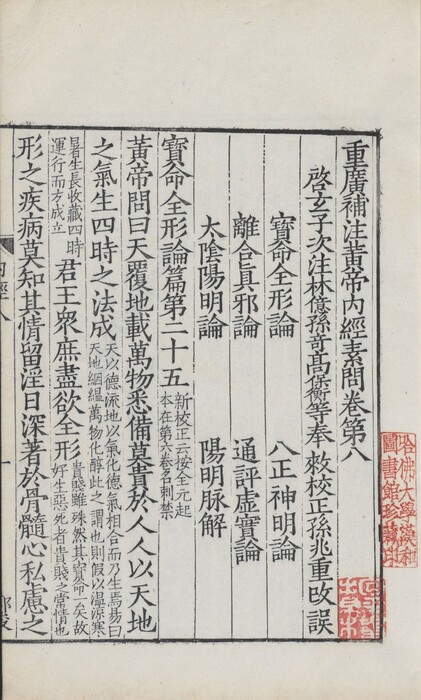 重廣補注黃帝內經素問卷第八
啓玄子次注林億孫竒高保衡等奉敕校正孫兆重改誤
寶命全形論 八正神明論
離合真邪論 通評虛實論
太陰陽明論 陽明脉解
寶命全形論篇第二十五 新校正云按全元起
本在第六卷名刺禁
黃帝問曰天覆地載萬物悉備莫貴於人人以天地
之氣生四時之法成 天以德流地以氣化德氣相合而乃生焉易曰
天地絪緼萬物化醇此之謂也則假以温凉寒
暑生長收藏四時
運行而方成立
君王衆庶盡欲全形 貴賤雖殊然其寶命一矣故
好生惡死者貴賤之常情也
形之疾病莫知其情留淫日深著於骨髓心私慮之
內經八
一
哈佛大學漢和
圖書館珍藏印